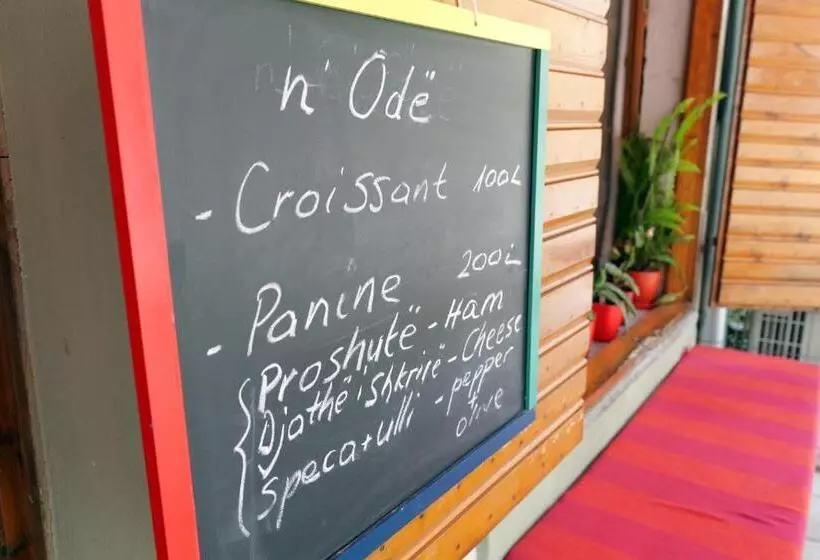 n' Odë
- Croissant 100L
- Panine 200L
Proshutë - Ham
Djathë i Shkrirë - Cheese
Speca + ulli - pepper + olive